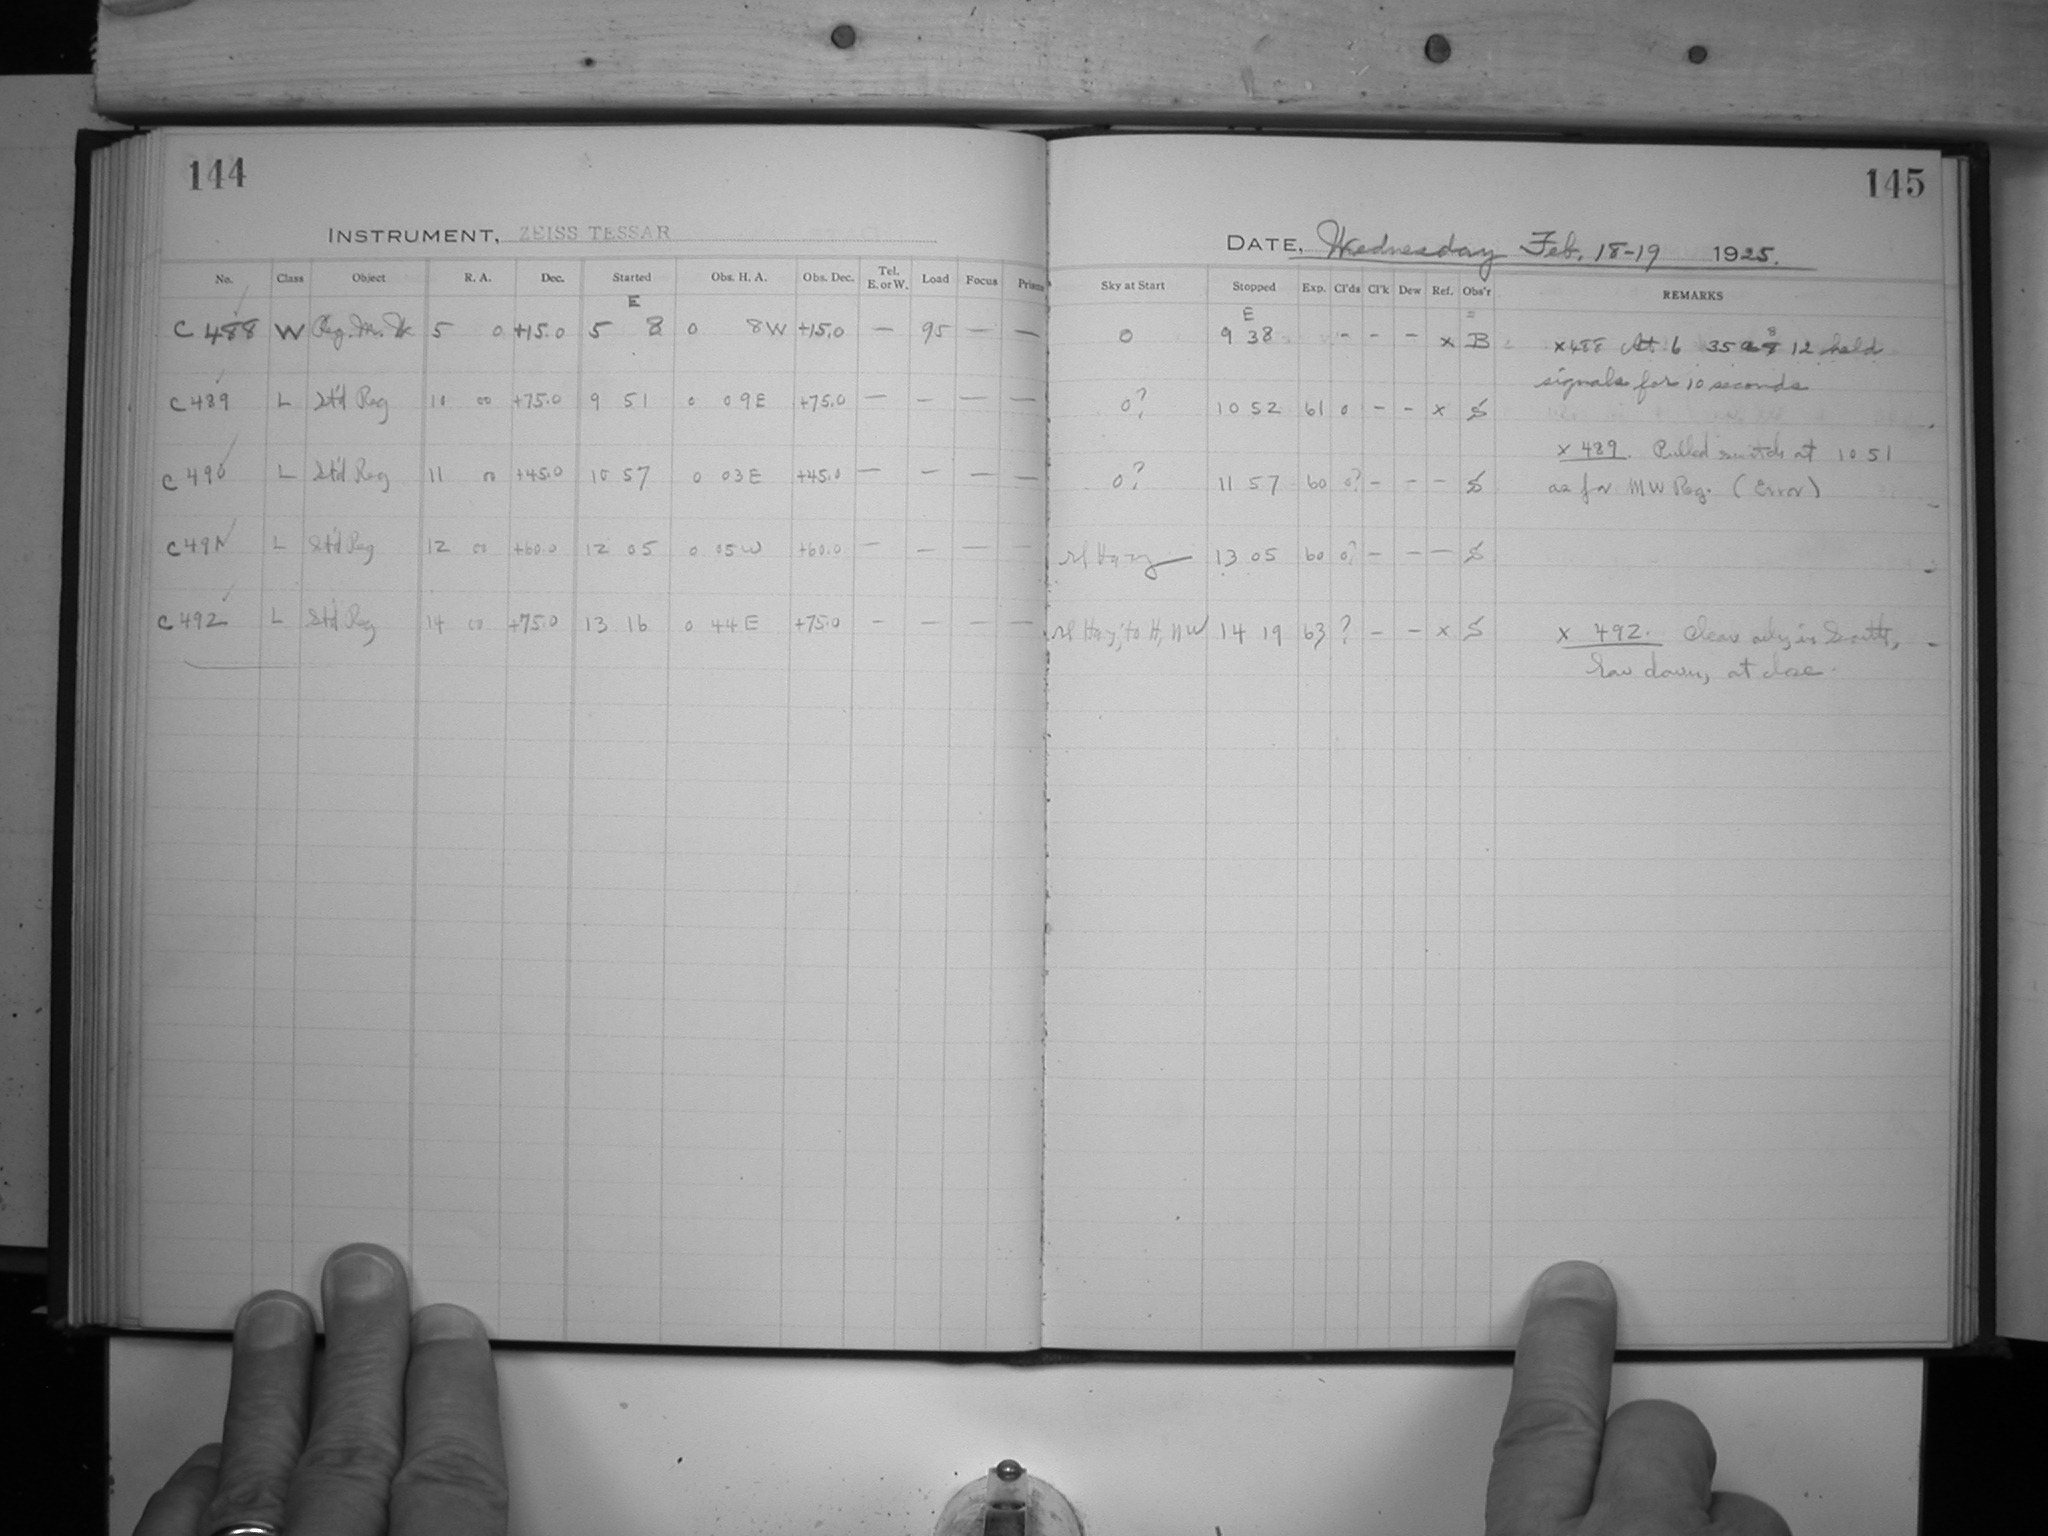 144
INSTRUMENT, ZEISS TESSAR
No. Class Object R. A. Dec. Started Obs. H. A. Obs. Dec. Tel. E. or W. Load Focus Prisms
E
C 488 W Reg. M. W. 5 0 +15.0 5 8 0 8W +15.0 — 95 — —
C 489 L Std Reg 10 00 +75.0 9 51 0 09E +75.0 — — — —
C 490 L Std Reg 11 00 +45.0 10 57 0 03E +45.0 — — — —
C 491 L Std Reg 12 00 +60.0 12 05 0 05W +60.0 — — — —
C 492 L Std Reg 14 00 +75.0 13 16 0 44E +75.0 — — — —
145
DATE, Wednesday Feb. 18-19 1925.
Sky at Start Stopped Exp. Cl'ds Cl'k Dew Ref. Obs'r REMARKS
E
0 9 38 - - - x B
0? 10 52 61 0 - - x S
0? 11 57 60 0? - - - S
Sl Hazy 13 05 60 0? - - - S
Sl Hazy, to H, NW 14 19 63 ? - - x S
x488 At 6 35 8 12 held
signals for 10 seconds
x 489. Pulled switch at 10 51
as for MW Reg. (Error)
x 492. Clear only in South,
low down, at close.